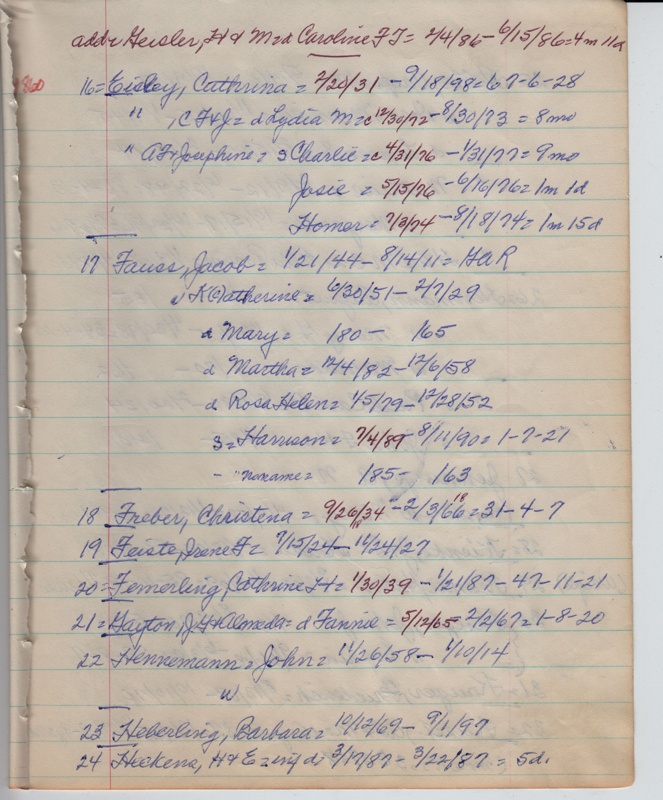 add Geisler, H & M = d Caroline F J = 2/4/86 - 6/15/86 = 4m 11d
1860
16 = Eisley, Cathrina = 2/20/31 - 9/18/98 = 67-6-28
" , C F & J = d Lydia M = c 12/30/72 - 8/30/73 = 8 mo
" A F & Josephine = s Charlie = c 4/31/76 - 1/31/77 = 9 mo
Josie = 5/15/76 - 6/16/76 = 1m 1d
Homer = 7/3/74 - 8/18/74 = 1m 15d
17 Fauss, Jacob = 1/21/44 - 8/14/11 = GAR
w K Catherine = 6/30/51 - 2/7/29
d Mary = 180 - 165
d Martha = 12/4/82 - 12/6/58
d Rosa Helen = 1/5/79 - 12/28/52
s = Harrison = 7/4/89 - 8/11/90 = 1-7-27
- " noname = 185 - 163
18 Freber, Christena = 9/26/18 34 - 2/3/18 66 = 31-4-7
19 Feiste, Irene F = 7/15/24 - 11/24/27
20 = Femerling, Cathrine H = 1/30/39 - 1/21/87 - 47-11-21
21 = Gayton, J H & Almeda = d Fannie = 5/12/65 - 2/2/67 = 1-8-20
22 Hennemann = John = 11/26/58 - 1/10/14
w
23 Heberling, Barbara = 10/12/69 - 9/1/97
24 Hickena, H & E = inf d: 3/17/87 - 3/22/87 = 5d.